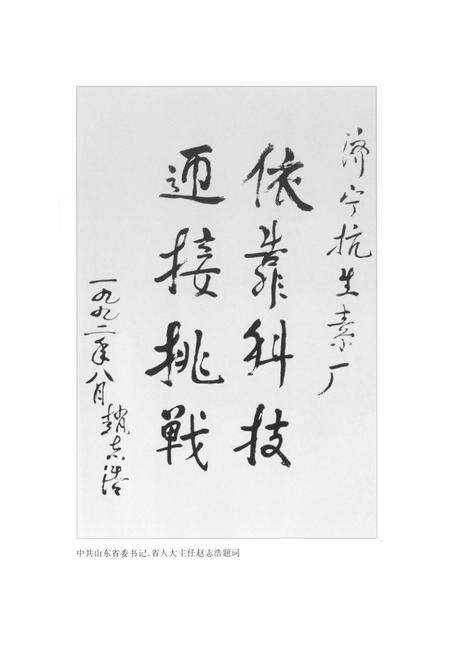 济宁抗生素厂
依靠科技
迎接挑战
一九九二年八月 趙志浩
中共山东省委书记、省人大主任赵志浩题词